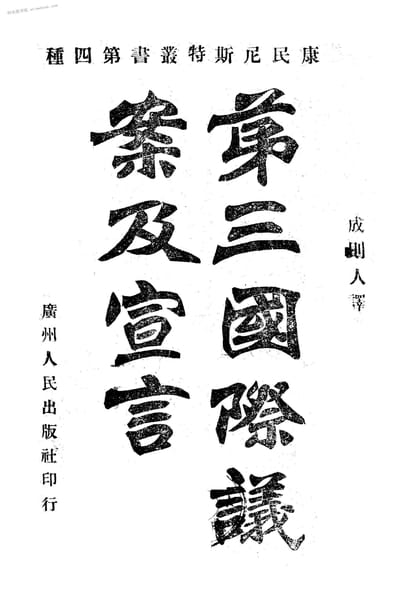 康民尼斯特叢書第四種
成則人譯
第三國際議
案及宣言
廣州人民出版社印行